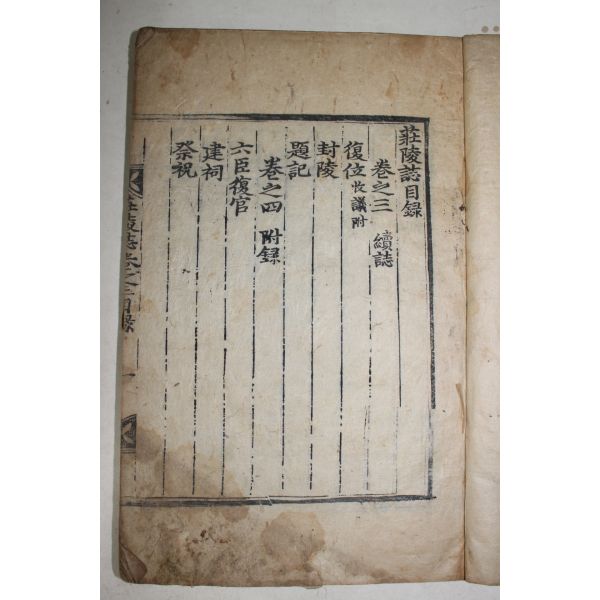 莊陵誌目録
卷之三 續誌
復位 收議附
封陵
題記
卷之四 附録
六臣復官
建祠
祭祝
莊陵誌卷之三目録 一